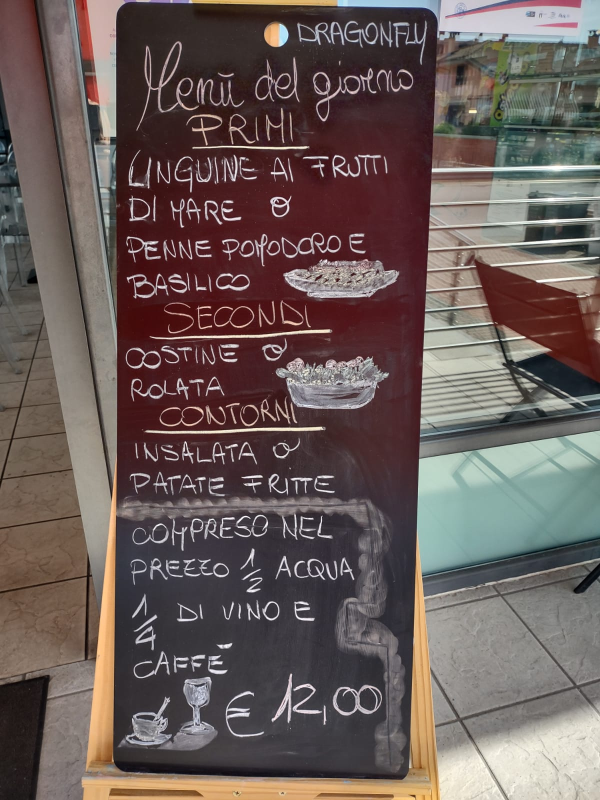 DRAGONFLY
Menù del giorno
PRIMI
LINGUINE AI FRUTTI
DI MARE O
PENNE POMODORO E
BASILICO
SECONDI
COSTINE O
ROLATA
CONTORNI
INSALATA O
PATATE FRITTE
COMPRESO NEL
PREZZO 1/2 ACQUA
1/4 DI VINO E
CAFFÈ
€ 12,00